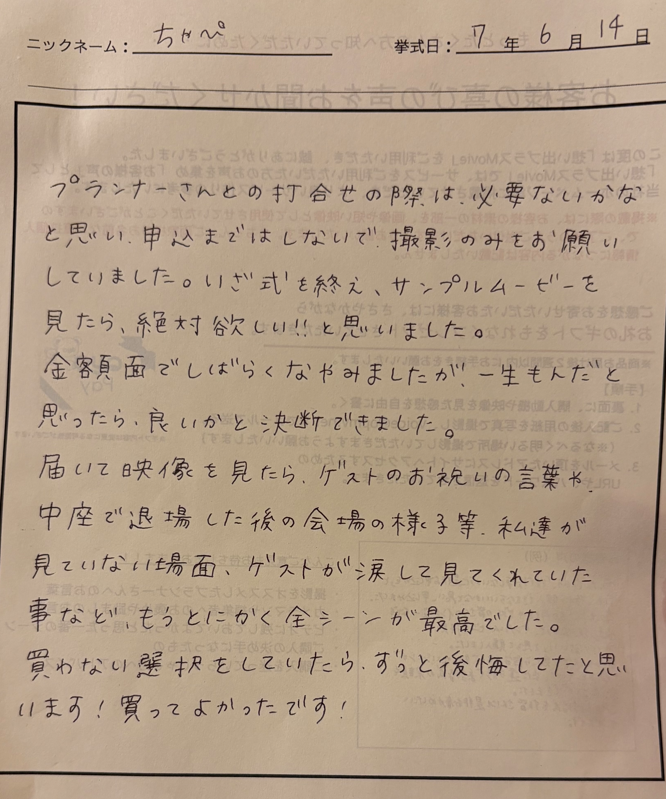 ニックネーム： ちゃぺ 挙式日： 7 年 6 月 14 日
プランナーさんとの打合せの際は、必要ないかな
と思い、申込まではしないで、撮影のみをお願い
していました。いざ式を終え、サンプルムービーを
見たら、絶対欲しい!!と思いました。
金額面でしばらくなやみましたが、一生もんだと
思ったら、良いかと決断できました。
届いて映像を見たら、ゲストのお祝いの言葉や、
中座で退場した後の会場の様子等、私達が
見ていない場面、ゲストが涙して見てくれていた
事など、もうとにかく全シーンが最高でした。
買わない選択をしていたら、ずっと後悔してたと思
います！買ってよかったです！